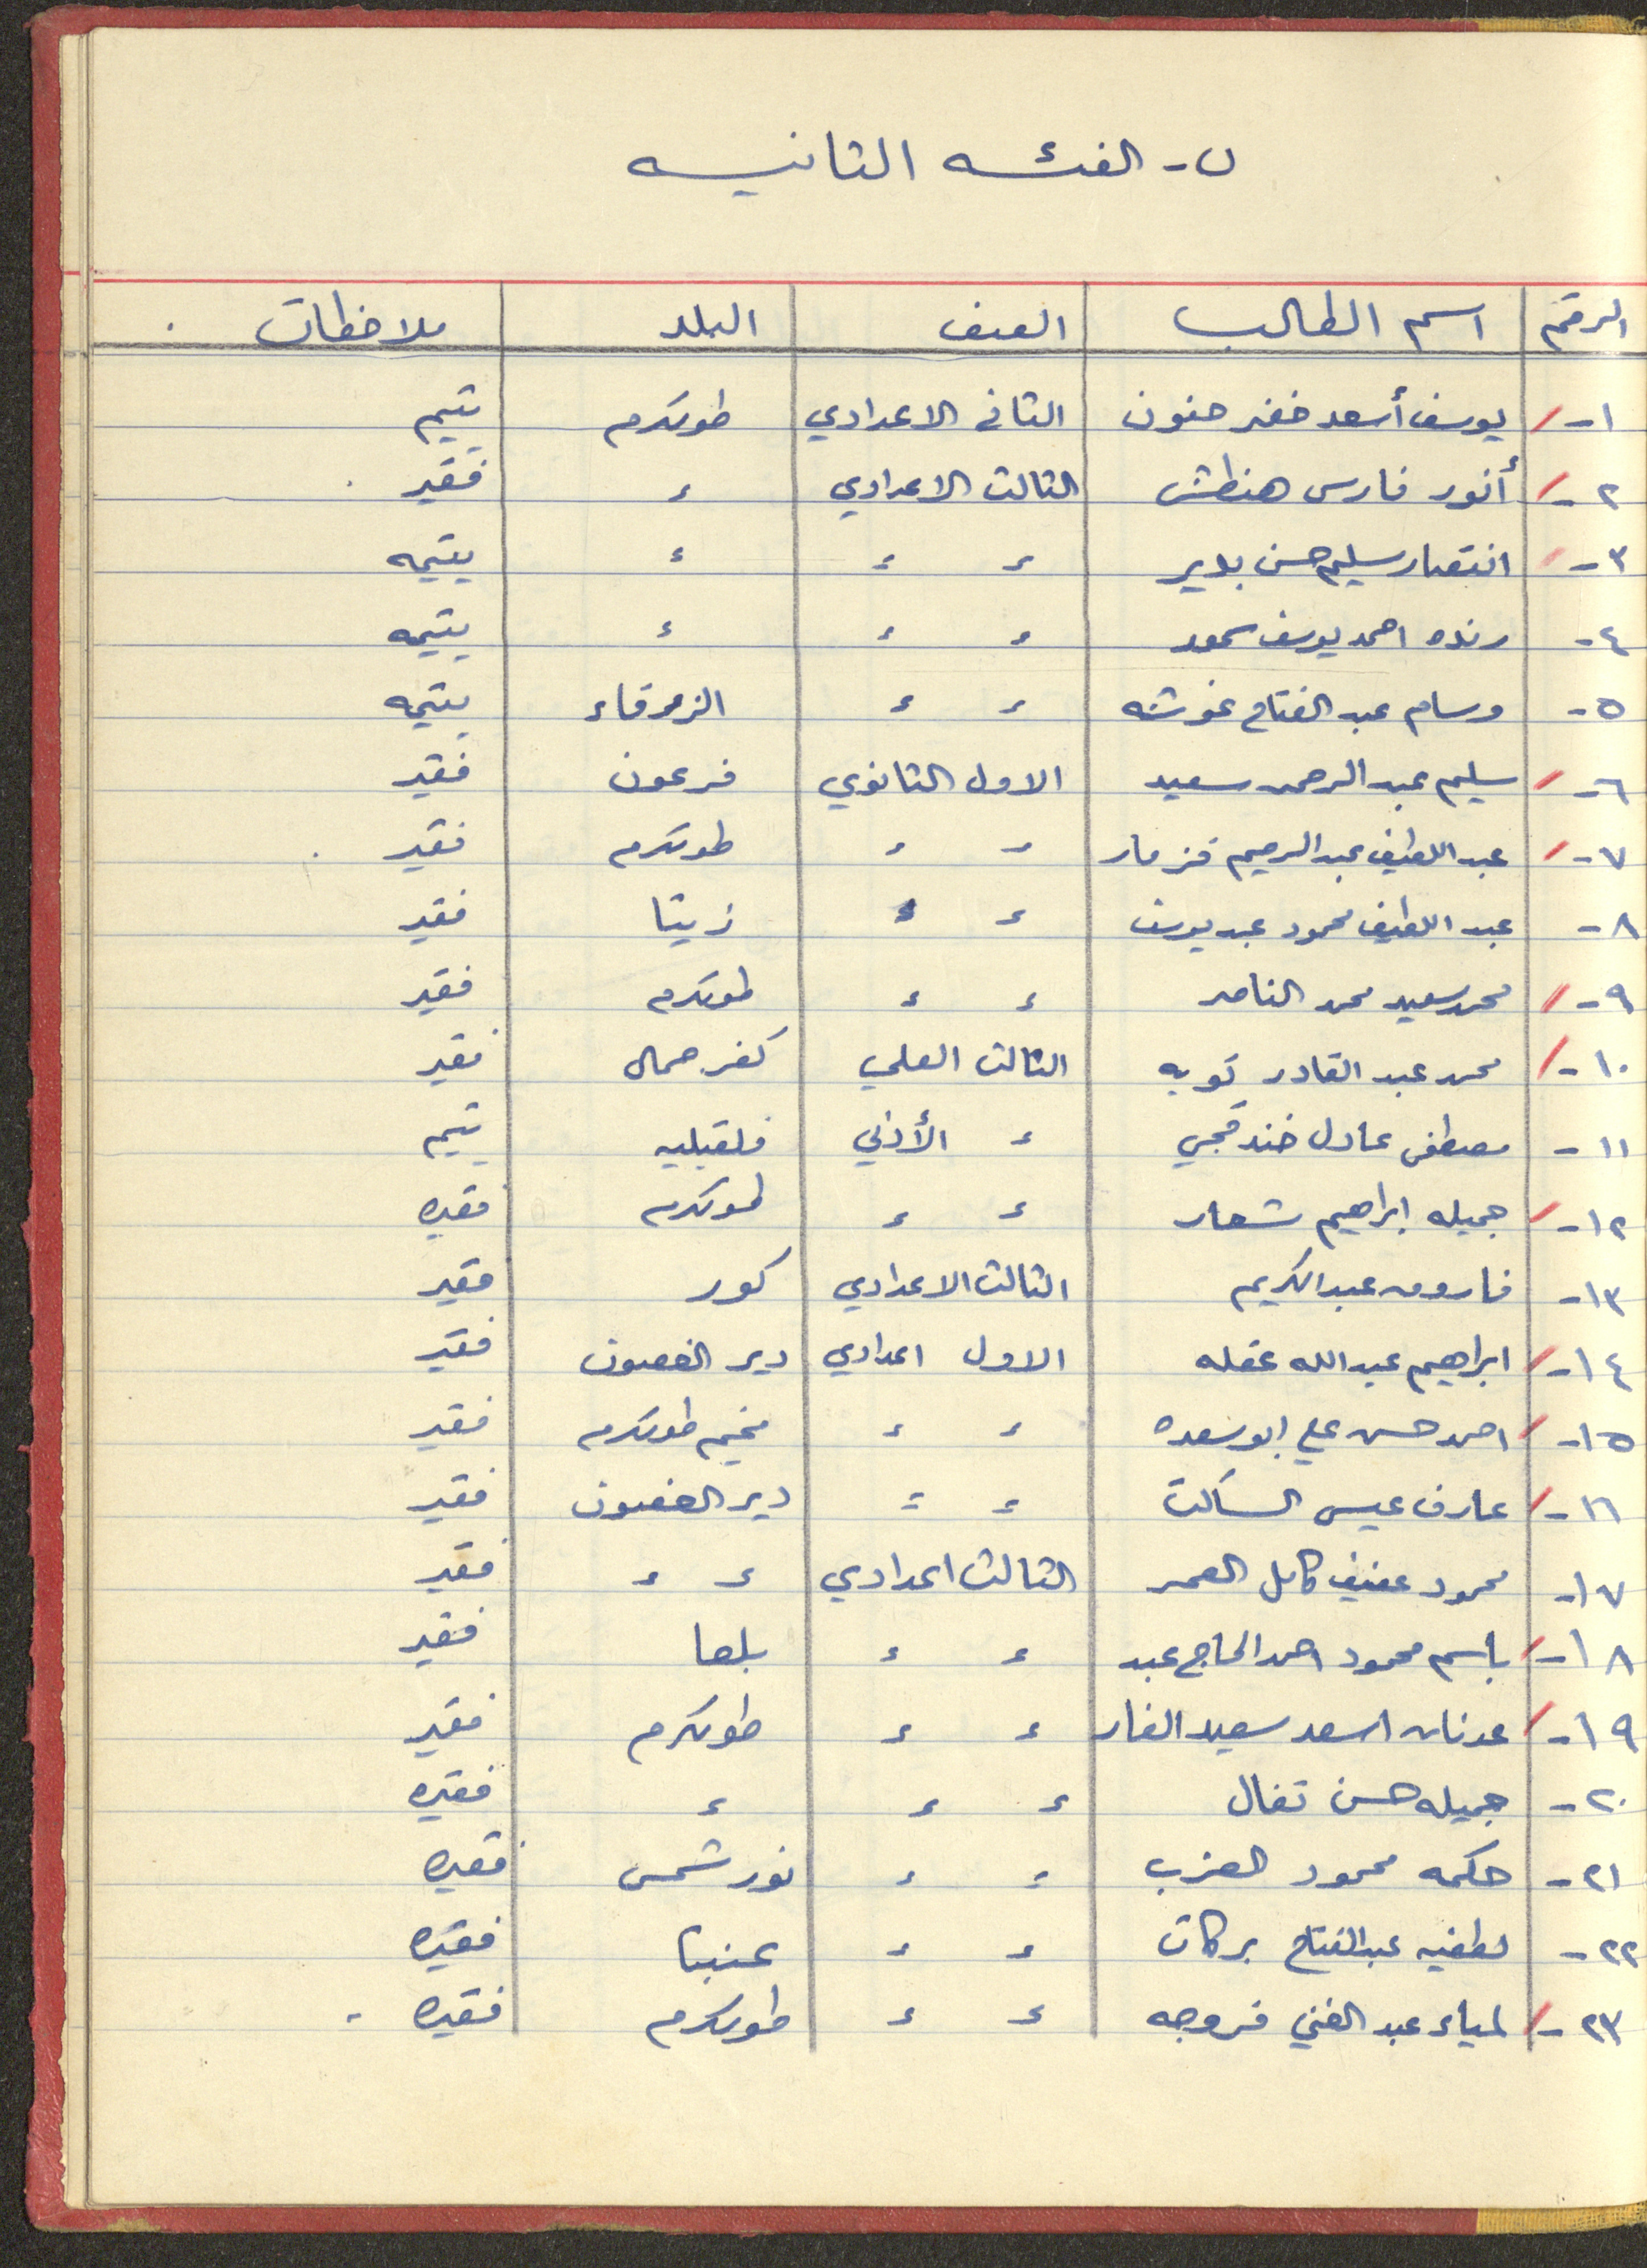 ب- الفئه الثانيه
الرقم اسم الطالب الصف البلد ملاحظات
١- يوسف أسعد خضر حنون الثاني الاعدادي طولكرم يتيم
٢- أنور فارس هنطش الثالث الاعدادي ء فقير
٣- انتصار سليم حسن بدير ء ء ء يتيمه
٤- رنده احمد يوسف ء ء ء يتيمه
٥- وسام عبد الفتاح غوشه ء ء الزرقاء يتيمه
٦- سليم عبد الرحمن سعيد الاول الثانوي فرعون فقير
٧- عبد اللطيف عبد الرحيم قزمار ء ء طولكرم فقير
٨- عبد اللطيف محمود عبد يوسف ء ء زيتا فقير
٩- محمد سعيد محمد الناصر ء ء طولكرم فقير
١٠- محمد عبد القادر توبه الثالث العلمي كفر جمال فقير
١١- مصطفى عادل خندقجي ء الأدبي قلقيليه يتيم
١٢- جميله ابراهيم شعار ء ء طولكرم فقيره
١٣- فاروق عبد الكريم الثالث الاعدادي كور فقير
١٤- ابراهيم عبد الله عقله الاول اعدادي دير الغصون فقير
١٥- احمد حسن علي ابو سعده ء ء مخيم طولكرم فقير
١٦- عارف عيسى الساكت ء ء دير الغصون فقير
١٧- محمود عفيف كامل العمر الثالث اعدادي ء ء فقير
١٨- باسم محمود احمد الحاج عبد ء ء بلعا فقير
١٩- عدنان اسعد سعيد الفار ء ء طولكرم فقير
٢٠- جميله حسن تفال ء ء ء فقيره
٢١- حكمه محمود العزب ء ء نور شمس فقيره
٢٢- لطفيه عبد الفتاح بركات ء ء عنبتا فقيره
٢٣- لمياء عبد الغني فروجه ء ء طولكرم فقيره